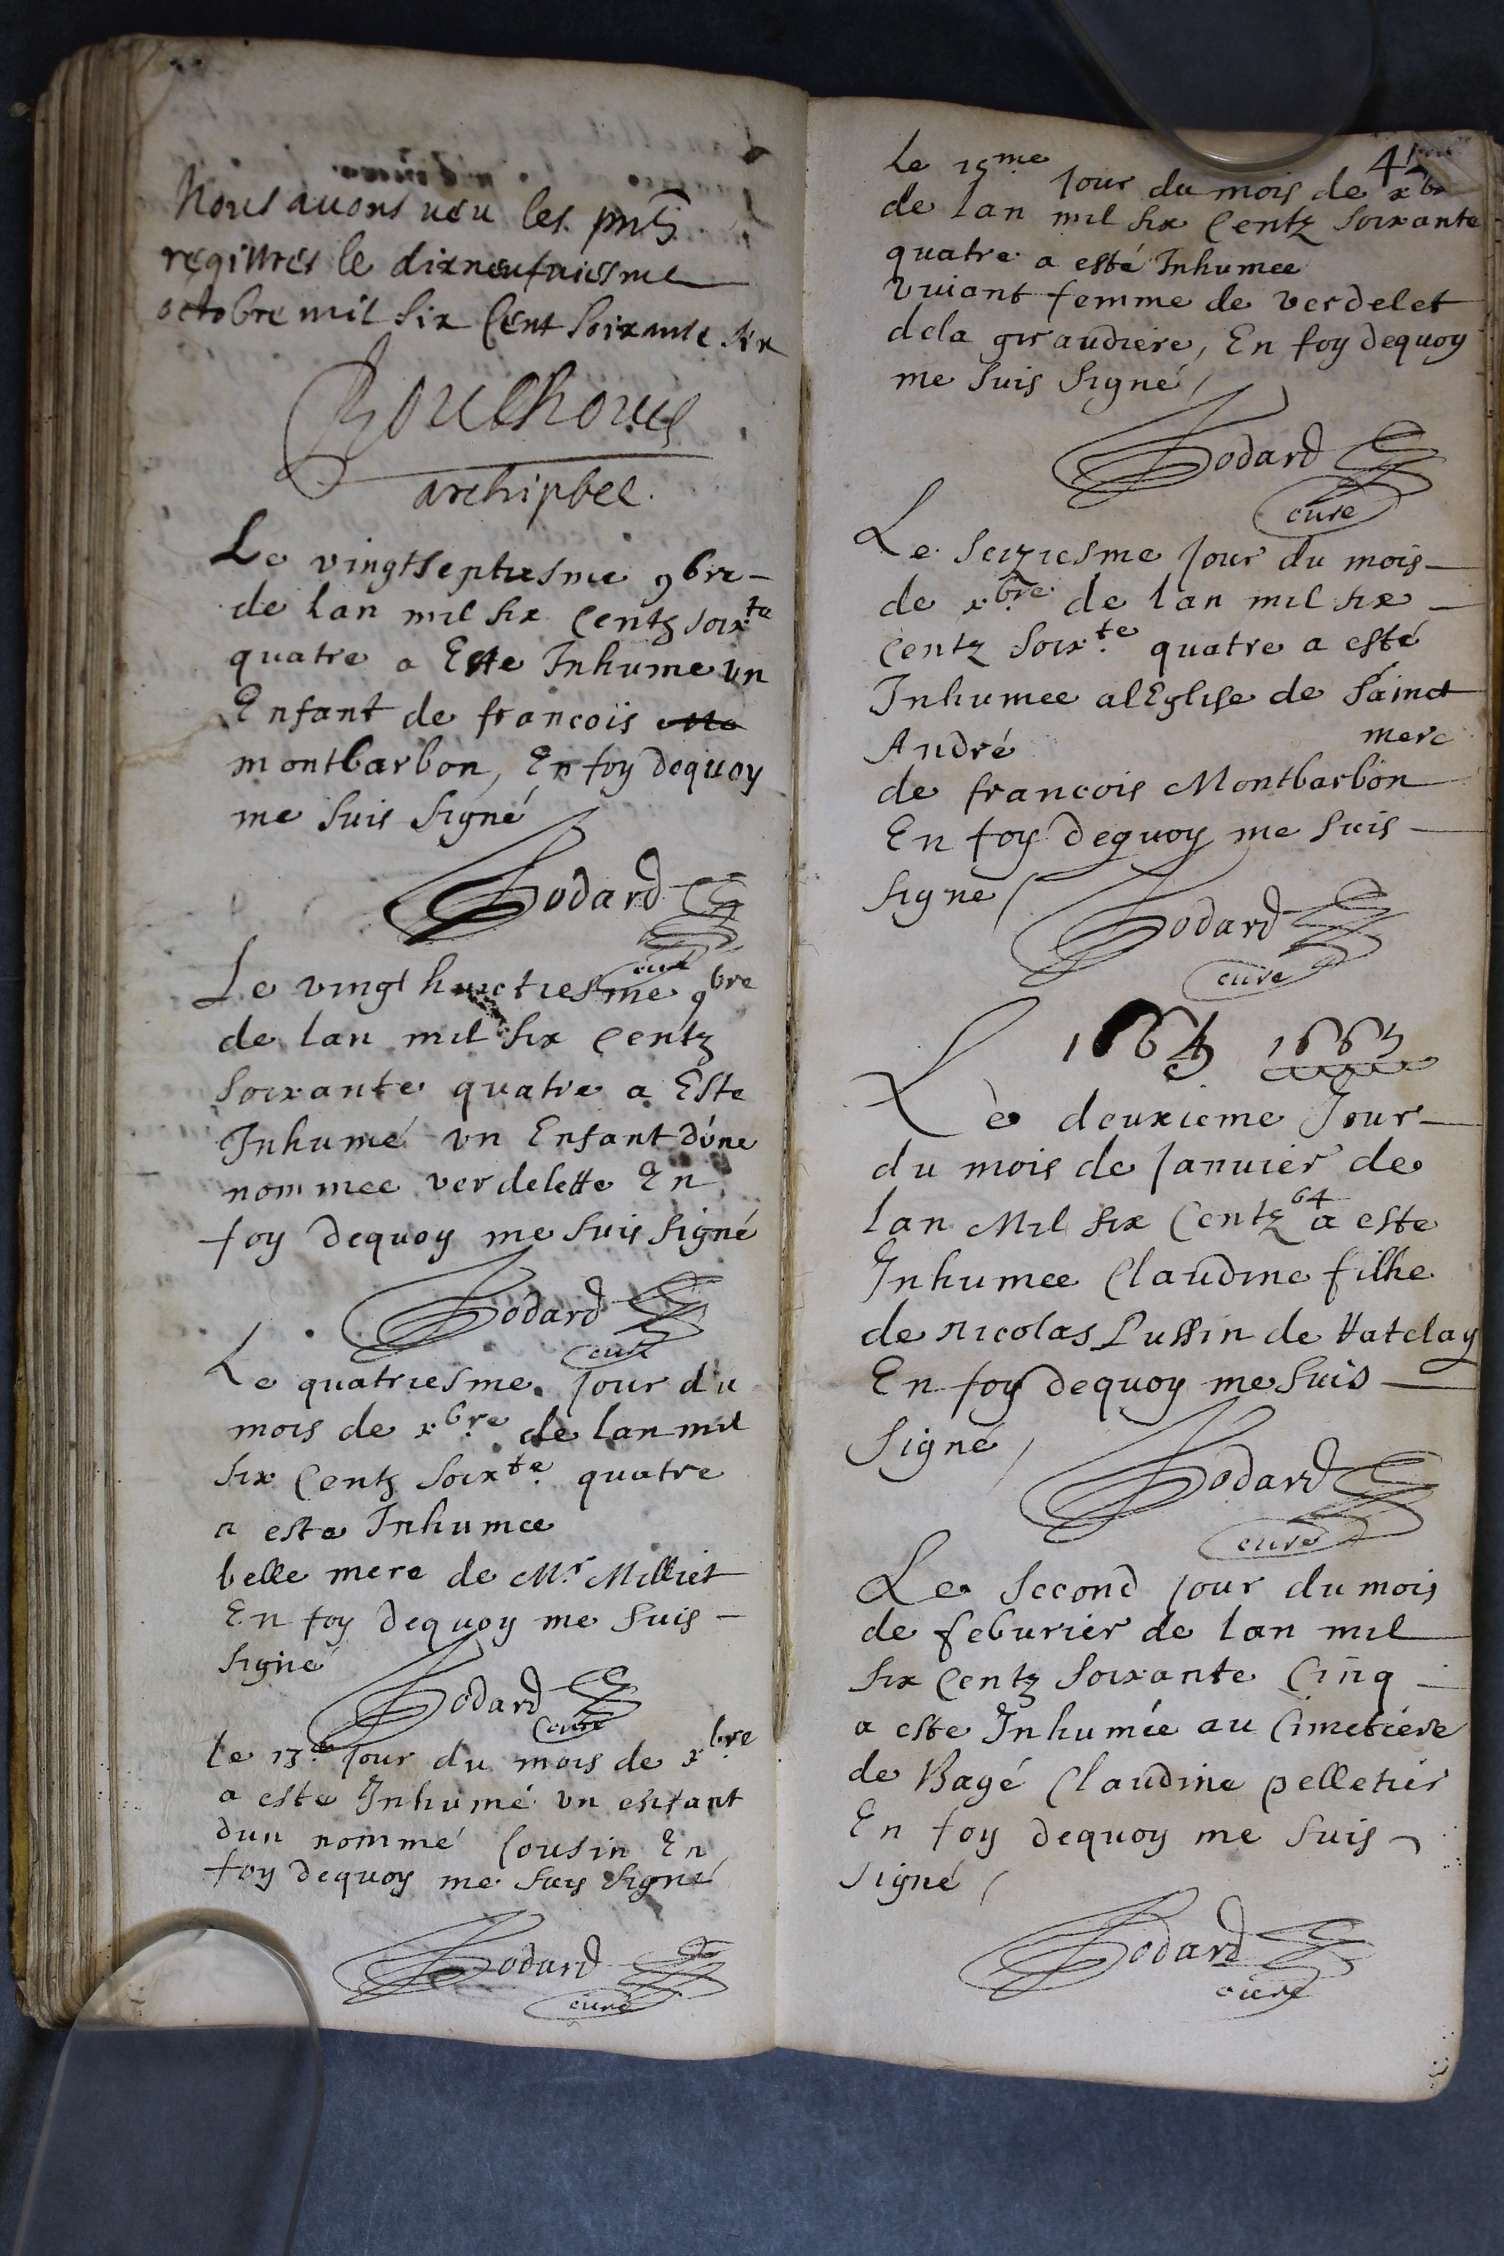 Nous auons ueu les pnts
regittres le dixneufuiesme
octobre mil six Cent soixante six
archipbre.
Le vingtseptiesme 9bre
de lan mil six Centz soixte
quatre a Este Inhume vn
Enfant de francois
montbarbon, En foy dequoy
me suis signé
Godard
curé
Le vingt huictiesme 9bre
de lan mil six Centz
soixante quatre a Este
Inhumé vn Enfant d'une
nommee verdelette En
foy dequoy me suis signé
Godard
curé
Le quatriesme Jour du
mois de xbre de lan mil
six Centz soixte quatre
a este Inhumee
belle mere de Mr Milliet
En foy dequoy me suis
signé
Godard
curé
le 13e Jour du mois de xbre
a este Inhumé vn enfant
dun nommé Cousin En
foy dequoy me suis signé
Godard
curé
41
Le 15me Jour du mois de xbre
de lan mil six Centz soixante
quatre a esté Inhumee
viuant femme de verdelet
dela giraudiere, En foy dequoy
me suis signé
Godard
cure
Le seiziesme Jour du mois
de xbre de lan mil six
Centz soixte quatre a esté
Inhumee al Eglise de sainct
André mere
de francois Montbarbon
En foy dequoy me suis
signe
Godard
cure
1664 1665
Le deuxieme Jour
du mois de Janvier de
lan Mil six Centz 64 a este
Inhumee Claudine filhe
de nicolas Pussin de Hatelay
En foy dequoy me suis
signé
Godard
curé
Le second Jour du mois
de feburier de lan mil
six Centz soixante Cinq
a este Inhumée au Cimetiere
de Bagé Claudine pelletier
En foy dequoy me suis
signé
Godard
curé